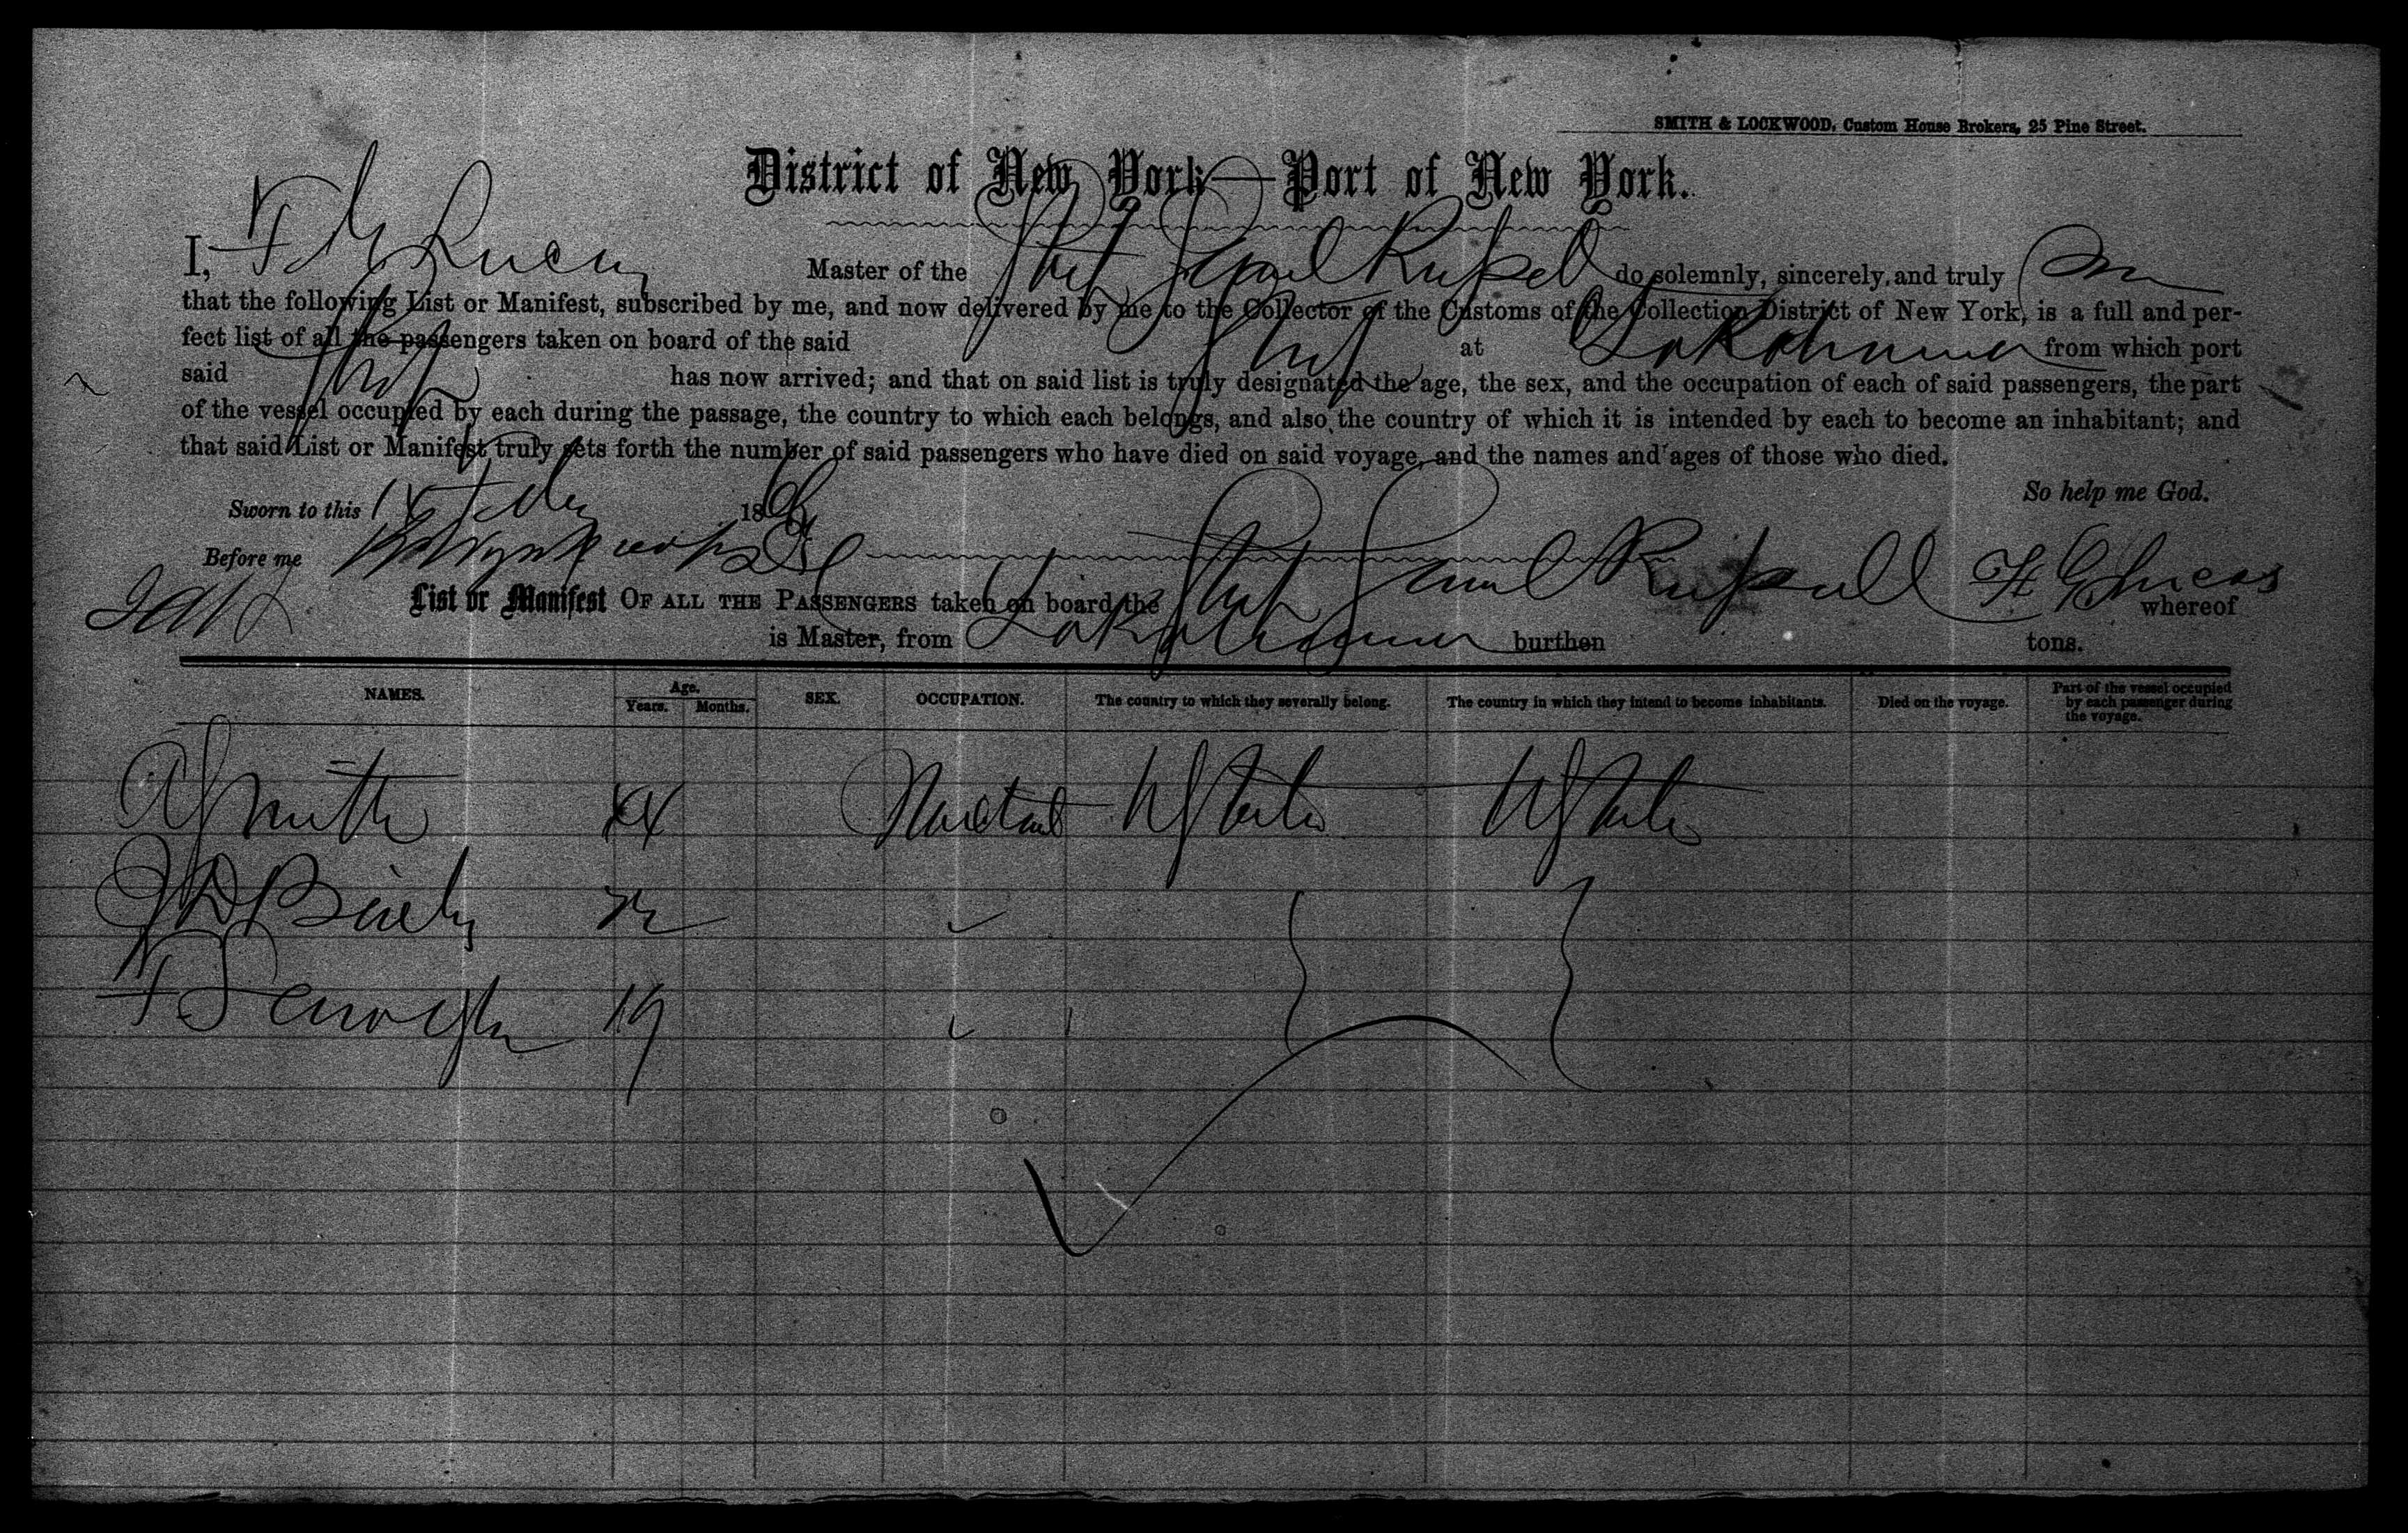 SMITH & LOCKWOOD, Custom House Brokers, 25 Pine Street.
District of New York—Port of New York.
I, F G Lucas Master of the Ship Saml Russel do solemnly, sincerely, and truly
that the following List or Manifest, subscribed by me, and now delivered by me to the Collector of the Customs of the Collection District of New York, is a full and per-
fect list of all the passengers taken on board of the said Ship at Yokohama from which port
said Ship has now arrived; and that on said list is truly designated the age, the sex, and the occupation of each of said passengers, the part
of the vessel occupied by each during the passage, the country to which each belongs, and also the country of which it is intended by each to become an inhabitant; and
that said List or Manifest truly sets forth the number of said passengers who have died on said voyage, and the names and ages of those who died.
So help me God.
Sworn to this 186
Before me
F G Lucas
List or Manifest OF ALL THE PASSENGERS taken on board the Ship Saml Russell whereof
is Master, from Yokohama burthen tons.
NAMES. Age. Years. Months. SEX. OCCUPATION. The country to which they severally belong. The country in which they intend to become inhabitants. Died on the voyage. Part of the vessel occupied by each passenger during the voyage.
A Smith U States U States
J D
F 19